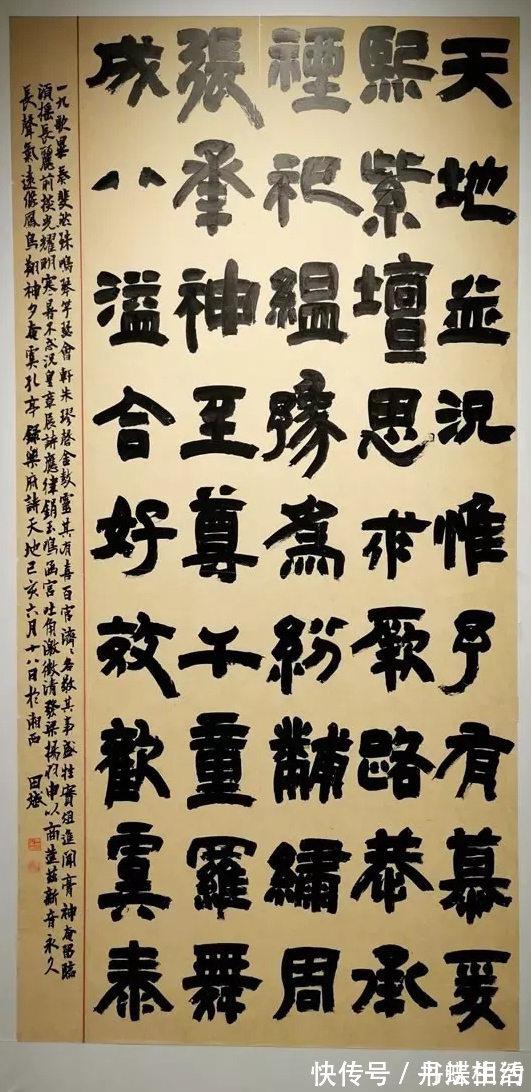 天地並況惟予有慕爰
熙紫壇思求厥路恭承
禋祀縕豫為紛黼繡周
張承神至尊千重羅舞
成八溢合好效歡虞泰
一九歌畢奏斐然殊鳴琴竽瑟會軒朱璆磬金鼓靈其有喜百官濟〻各敬其事盛牲實俎進聞膏神奄留臨
須搖長麗前掞光耀明寒暑不忒況皇章展詩應律鋗玉鳴函宮吐角激徵清發梁揚羽申以商造茲新音永久
長聲氣遠條鳳鳥翔神夕奄虞孔享 錄樂府詩天地己亥六月十八日於湘西 田
快传号 /